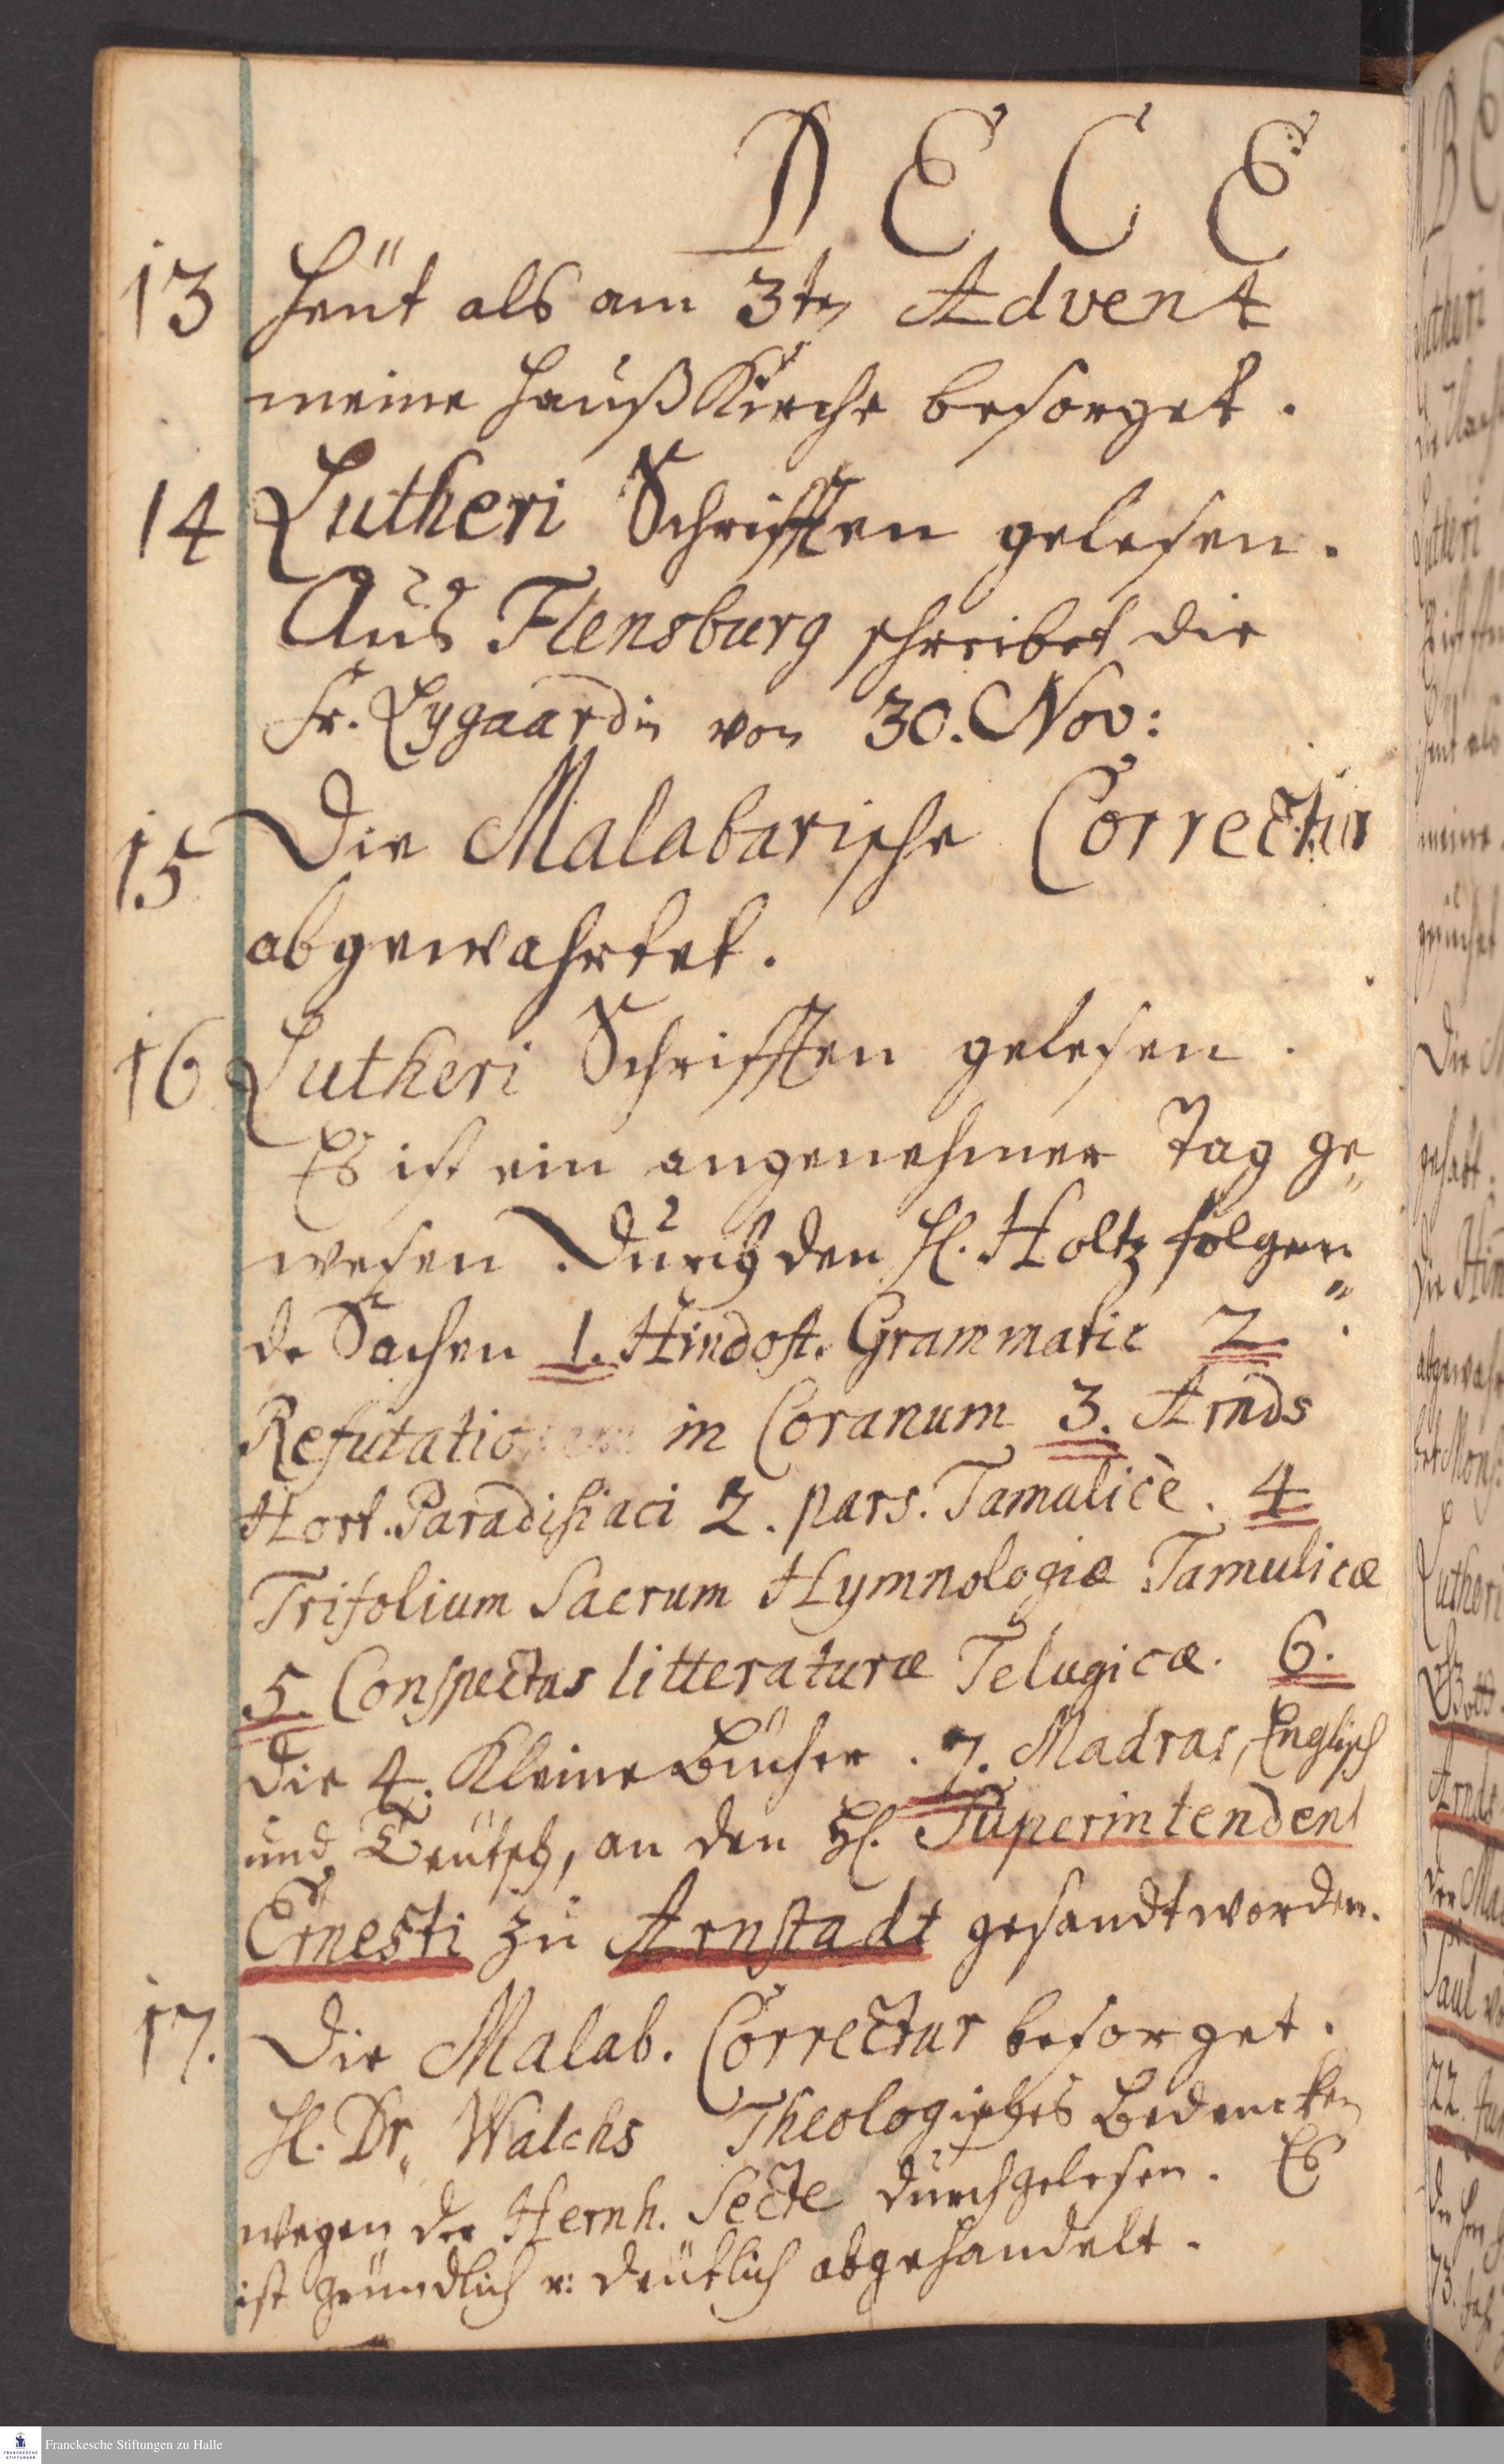 DECE
13 Heüt als am 3ten Advent
meine Hauß Kirche besorget.
14 Lutheri Schrifften gelesen.
Aus Flensburg schreibet die
Fr. Lygaardin von 30. Nov:
15 Die Malabarische Correctur
abgewahrtet.
16 Lutheri Schrifften gelesen.
Es ist ein angenehmer Tag ge„
wesen. Durch den H. Holtz folgen„
de Sachen 1. Hindost. Grammatic 2.
Refutatio in Coranum 3. Arnds
Hort. Paradisiaci 2. pars. Tamulicè. 4
Trifolium Sacrum Hymnologiæ Tamulicæ
5. Conspectus litteraturæ Telugicæ. 6.
die 4. Kleine Bücher. 7. Madras, Englisch
und Teütsch, an den H. Superintendent
Ernesti zu Arnstadt gesandt worden.
17. Die Malab. Correctur besorget.
H. Dr. Walchs Theologisches Bedencken
wegen der Hernh. Secte durchgelesen. Es
ist gründlich u: deütlich abgehandelt.
Franckesche Stiftungen zu Halle